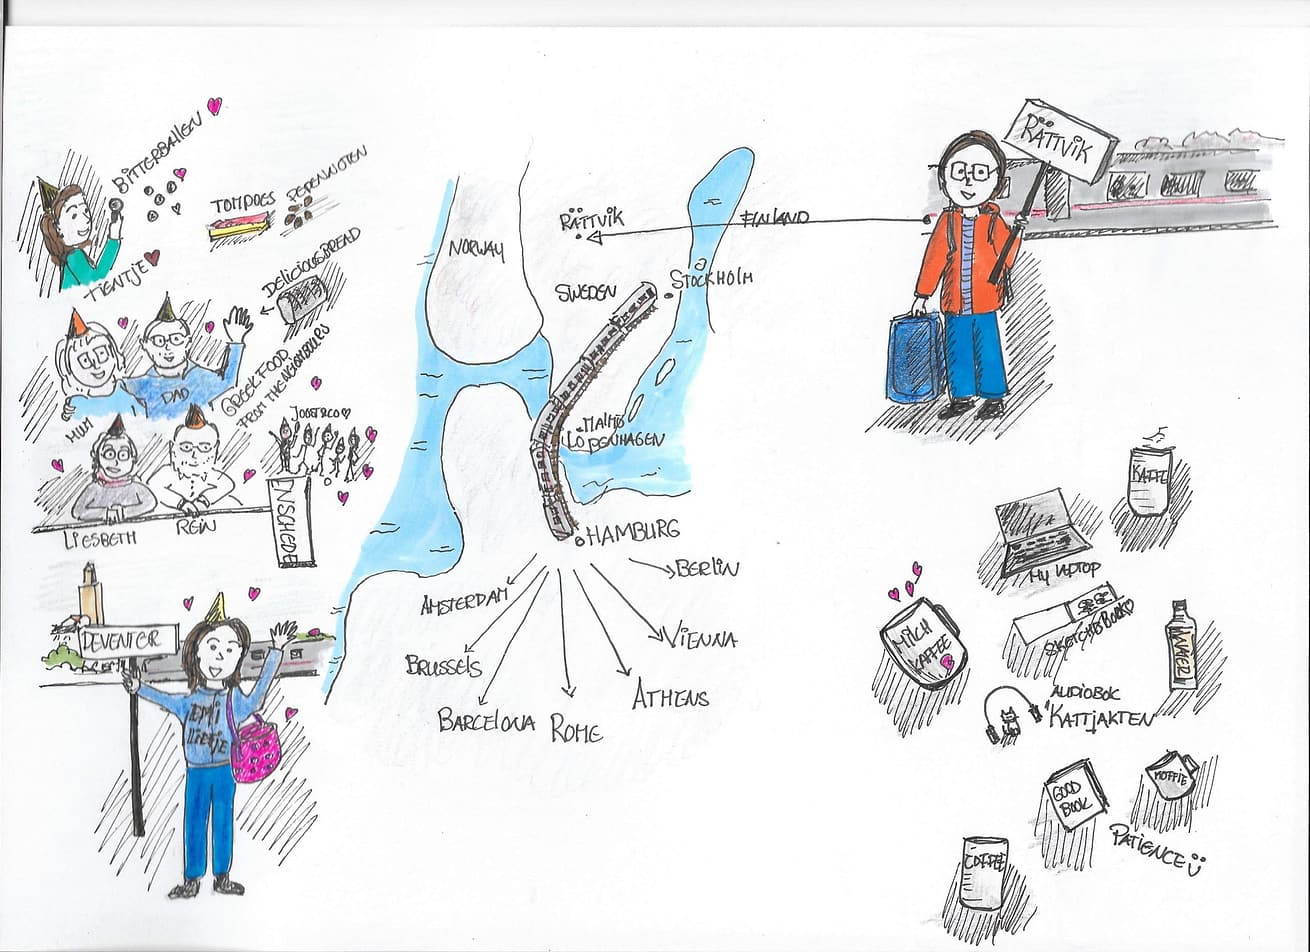 BITTERBALLEN
TOMPOES
PEPENNOTEN
TIENTJE
DELICIOUS BREAD
MUM
DAD
GREEK FOOD
FROM THE NEIGHBOURS
JOOST & CO
LIESBETH
REIN
ENSCHEDE
DEVENTER
EMI
LIETJE
NORWAY
RÄTTVIK
FINLAND
SWEDEN
STOCKHOLM
MALMÖ
COPENHAGEN
HAMBURG
BERLIN
AMSTERDAM
VIENNA
BRUSSELS
ATHENS
BARCELONA
ROME
RÄTTVIK
KAFFE
MY LAPTOP
MILCH
KAFFEE
SKETCHBOOK
WATER
AUDIOBOK
"KATTJAKTEN"
GOOD
BOOK
KOFFIE
PATIENCE
COFFEE